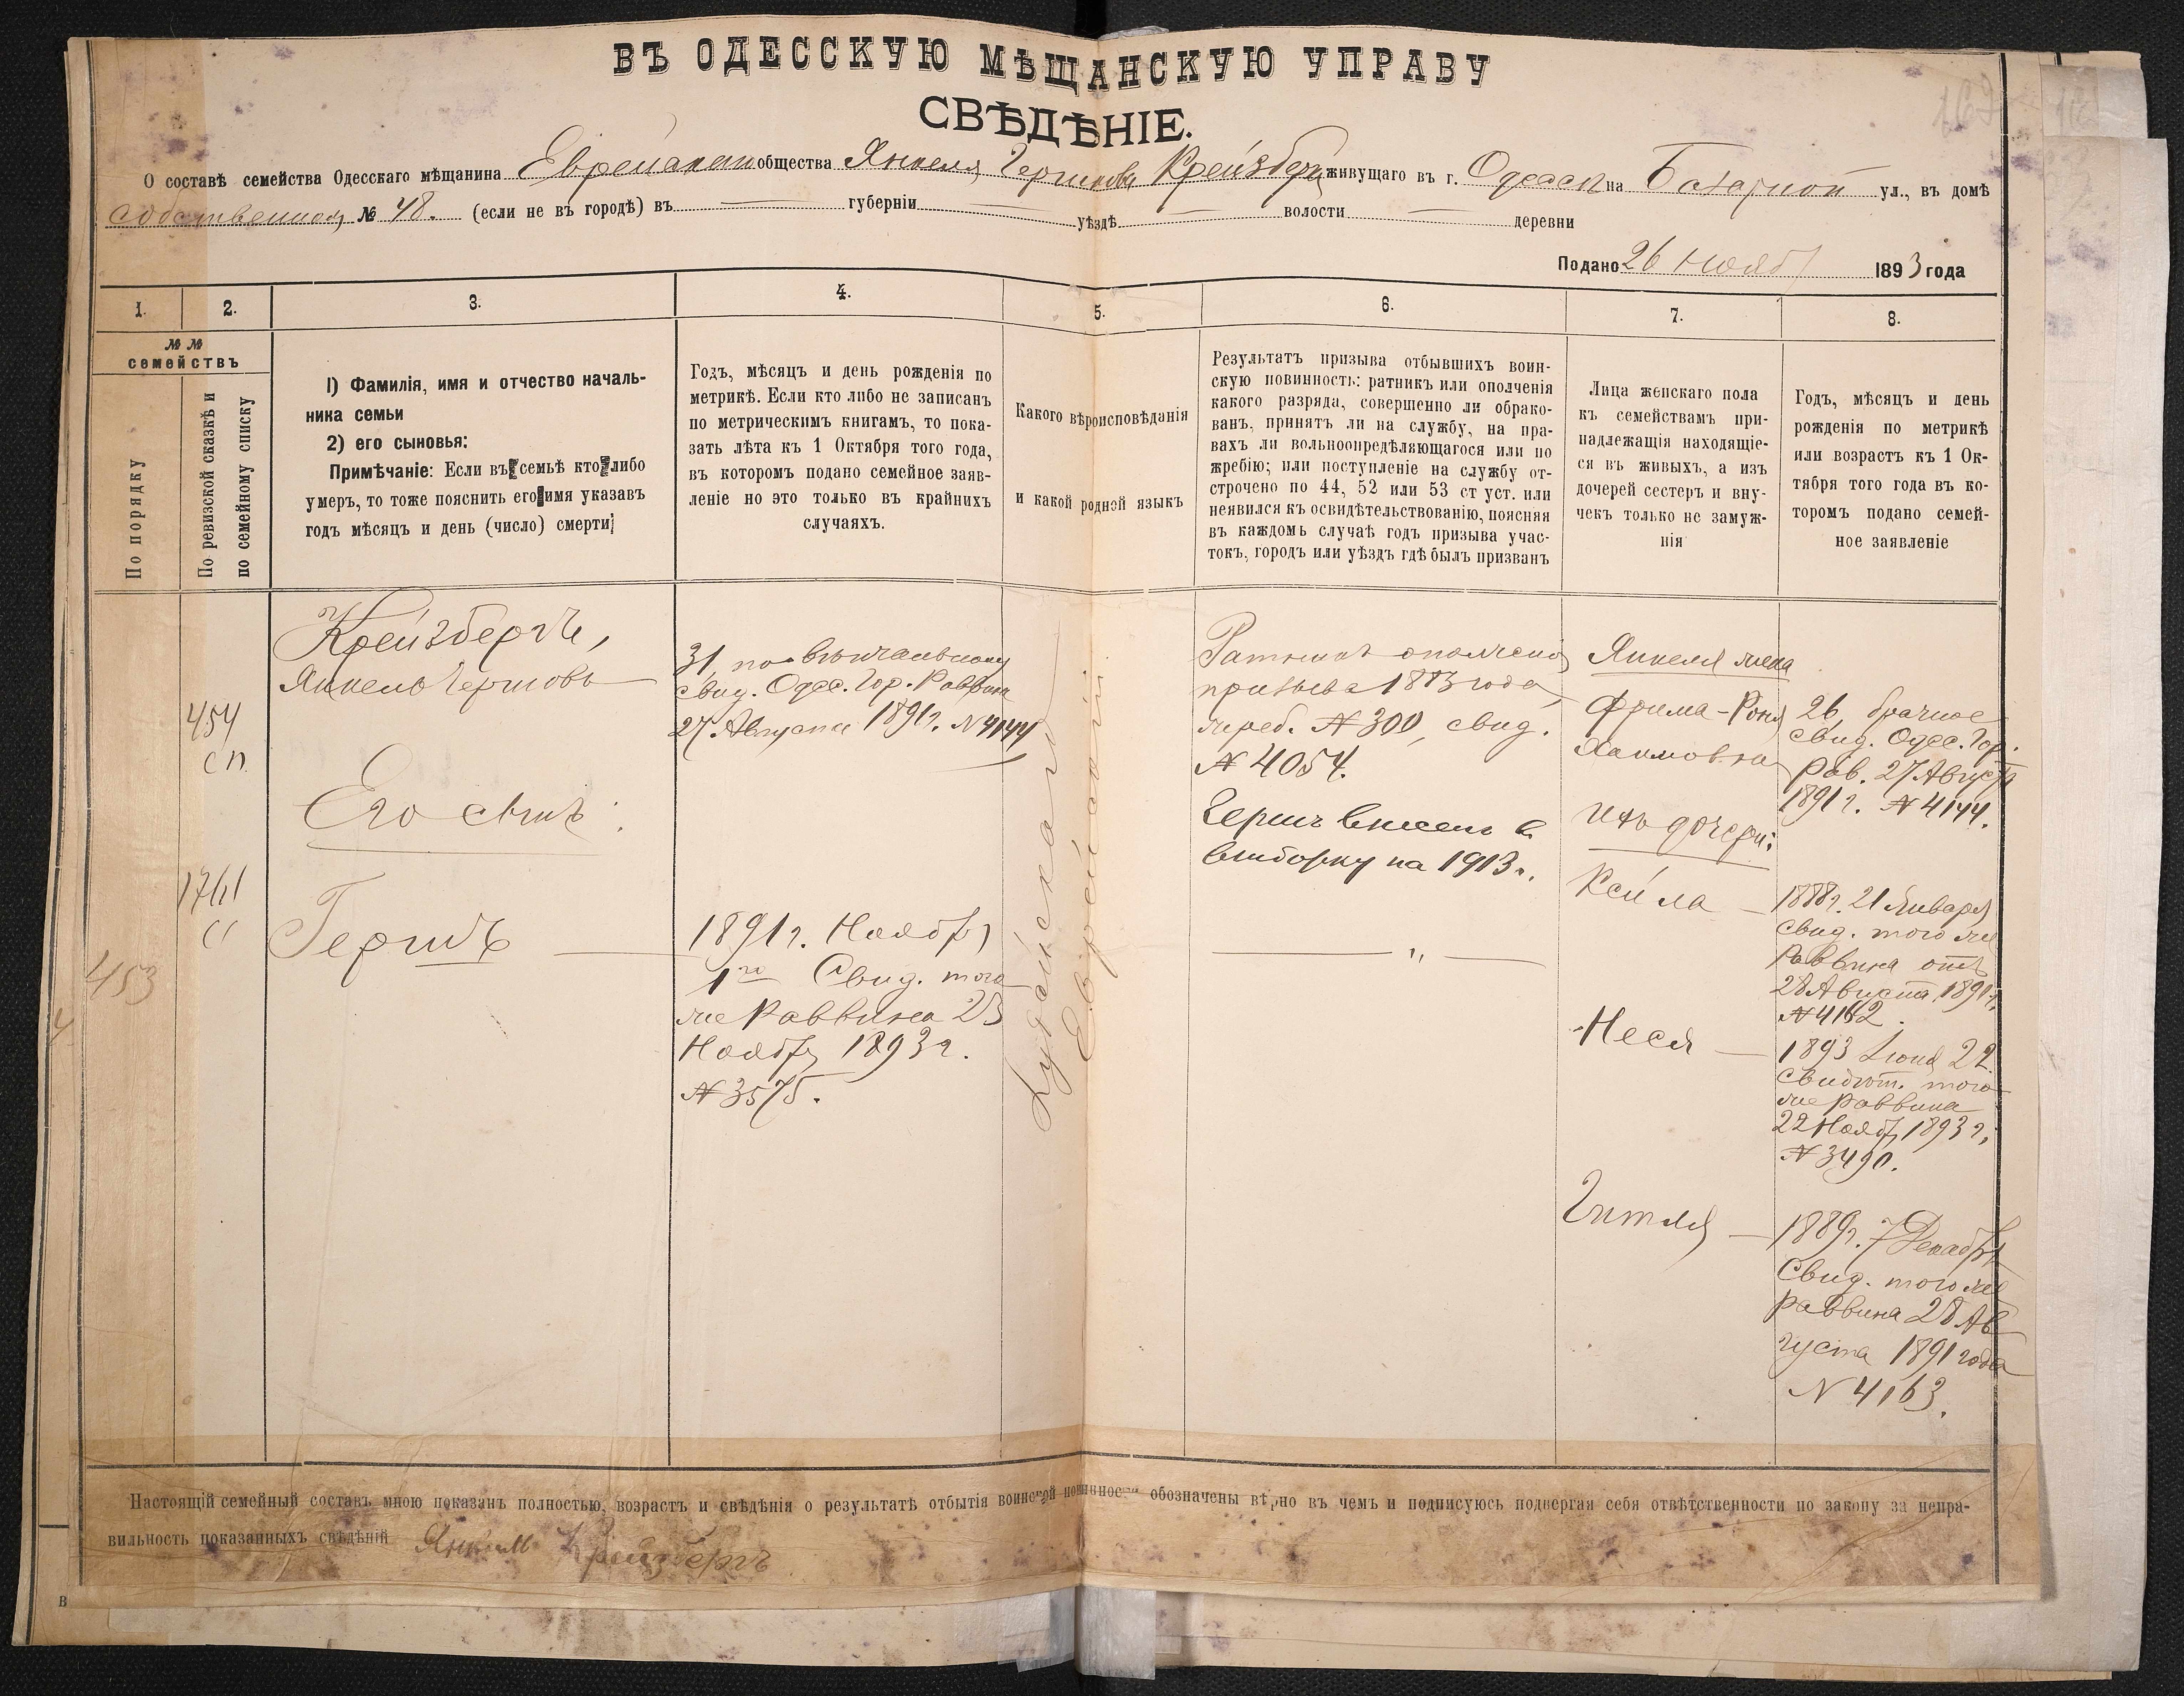 ВЪ ОДЕССКУЮ МѢЩАНСКУЮ УПРАВУ
СВѢДѢНІЕ.
О составѣ семейства Одесскаго мѣщанина Еврейскаго общества Янкеля Гершкова Крейзберг живущаго въ г. Одессѣ на Базарной ул., въ домѣ
собственном № 48. (если не въ городѣ) въ губерніи уѣздѣ волости деревни
Подано 26 Нояб 1893 года
1.
2.
3.
4.
5.
6.
7.
8.
№ №
семействъ
По порядку
По ревизской сказкѣ и
по семейному списку
1) Фамилія, имя и отчество началь-
ника семьи
2) его сыновья:
Примѣчаніе: Если въ семьѣ кто либо
умеръ, то тоже пояснить его имя указавъ
годъ мѣсяцъ и день (число) смерти;
Годъ, мѣсяцъ и день рожденія по
метрикѣ. Если кто либо не записанъ
по метрическимъ книгамъ, то пока-
зать лѣта къ 1 Октября того года,
въ которомъ подано семейное заяв-
леніе но это только въ крайнихъ
случаяхъ.
Какого вѣроисповѣданія
и какой родной языкъ
Результатъ призыва отбывшихъ воин-
скую повинность: ратникъ или ополченія
какого разряда, совершенно ли обрако-
ванъ, принятъ ли на службу, на пра-
вахъ ли вольноопредѣляющагося или по
жребію; или поступленіе на службу от-
строчено по 44, 52 или 53 ст уст. или
неявился къ освидѣтельствованію, поясняя
въ каждомъ случаѣ годъ призыва учас-
токъ, городъ или уѣздъ гдѣ былъ призванъ
Лица женскаго пола
къ семействамъ при-
надлежащія находящіе-
ся въ живыхъ, а изъ
дочерей сестеръ и вну-
чекъ только не замуж-
нія
Годъ, мѣсяцъ и день
рожденія по метрикѣ
или возрастъ къ 1 Ок-
тября того года въ ко-
торомъ подано семей-
ное заявленіе
454
сп
1761
сс
453
Крейзбергъ,
Янкель Гершковъ
Его сынъ:
Гершъ
31, по вѣнчальному
свид. Одес. Гор. Раввина
27 Августа 1891г. № 4144
1891г. Ноябр
1го Свид. того
же Раввина 23
Ноябр 1893г.
№ 3575.
Іудейскаго
Еврейскій
Ратник ополченія
призыва 1883 года,
жреб. № 300, свид.
№ 4054.
Герш внесен в
выборку на 1913г.
Янкеля жена
Фрима-Роня
Хаимовна
Ихъ дочери:
Кейла
Неся
Гитля
26, брачное
свид. Одес. Гор.
рав. 27 Августа
1891г. № 4144.
1888г. 21 Января
свид. того же
Раввина отъ
28 Августа 1891г.
№ 4162.
1893 Іюня 22.
свидѣт. того
же раввина
22 Нояб 1893г.
№ 3490.
1889г. 7 Декабря
Свид. того же
раввина 28 Ав
густа 1891 года
№ 4163.
Настоящій семейный составъ мною показанъ полностью, возрастъ и свѣдѣнія о результатѣ отбытія воинской повинности обозначены вѣрно въ чемъ и подписуюсь подвергая себя отвѣтственности по закону за непра-
вильность показанныхъ свѣдѣній Янкель Крейзбергъ